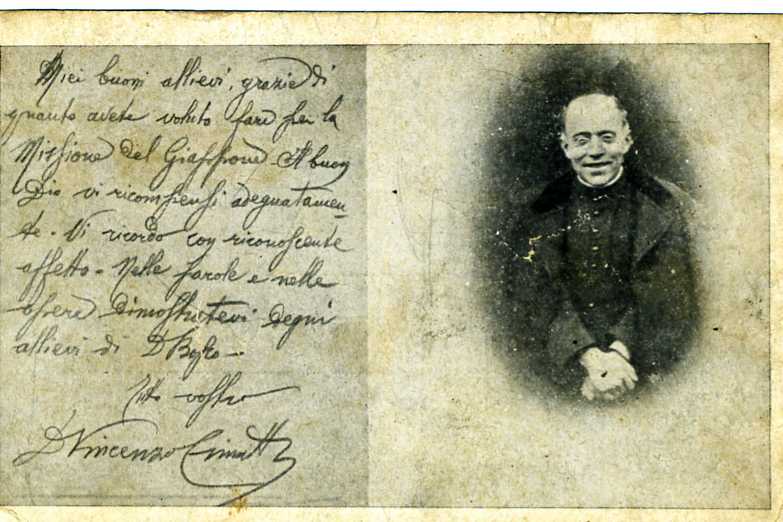 Miei buoni allievi, grazie di
quanto avete voluto fare per la
Missione del Giappone. Il buon
Dio vi ricompensi adeguatamen-
te. Vi ricordo con riconoscente
affetto. Nelle parole e nelle
opere dimostratevi degni
allievi di D Bosco.
Tutto vostro
D Vincenzo Cimatti